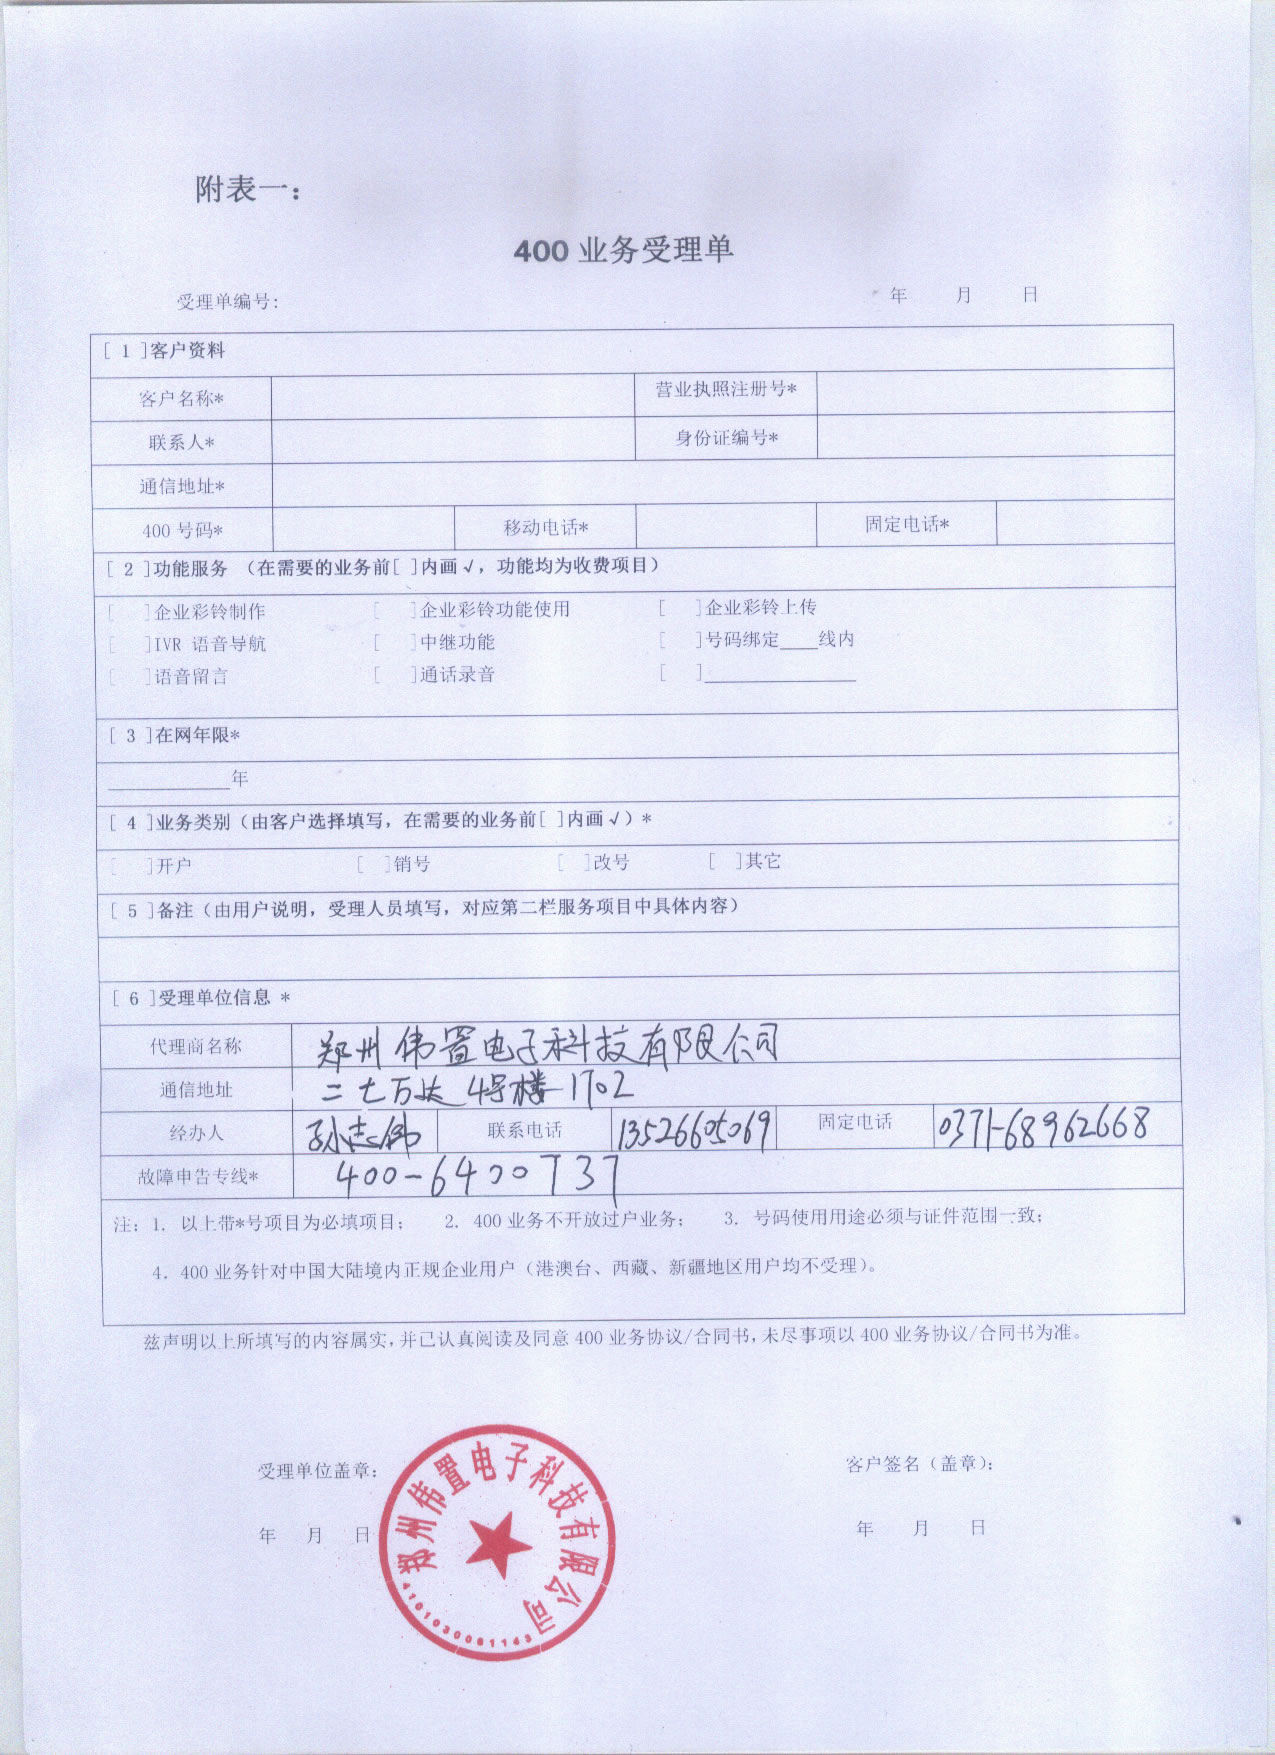 附表一：
400 业务受理单
受理单编号： 年 月 日
[ 1 ]客户资料
客户名称* 营业执照注册号*
联系人* 身份证编号*
通信地址*
400 号码* 移动电话* 固定电话*
[ 2 ]功能服务 （在需要的业务前[ ]内画√，功能均为收费项目）
[ ]企业彩铃制作 [ ]企业彩铃功能使用 [ ]企业彩铃上传
[ ]IVR 语音导航 [ ]中继功能 [ ]号码绑定____线内
[ ]语音留言 [ ]通话录音 [ ]________________
[ 3 ]在网年限*
_____________年
[ 4 ]业务类别（由客户选择填写，在需要的业务前[ ]内画√）*
[ ]开户 [ ]销号 [ ]改号 [ ]其它
[ 5 ]备注（由用户说明，受理人员填写，对应第二栏服务项目中具体内容）
[ 6 ]受理单位信息 *
代理商名称 郑州伟置电子科技有限公司
通信地址 二七万达 4号楼 1702
经办人 孙志伟 联系电话 13526605069 固定电话 0371-68962668
故障申告专线* 400-6400737
注：1. 以上带*号项目为必填项目； 2. 400 业务不开放过户业务； 3. 号码使用用途必须与证件范围一致；
4. 400 业务针对中国大陆境内正规企业用户（港澳台、西藏、新疆地区用户均不受理）。
兹声明以上所填写的内容属实，并已认真阅读及同意 400 业务协议/合同书，未尽事项以 400 业务协议/合同书为准。
受理单位盖章： 客户签名（盖章）：
年 月 日 年 月 日
郑州伟置电子科技有限公司
4101030061143